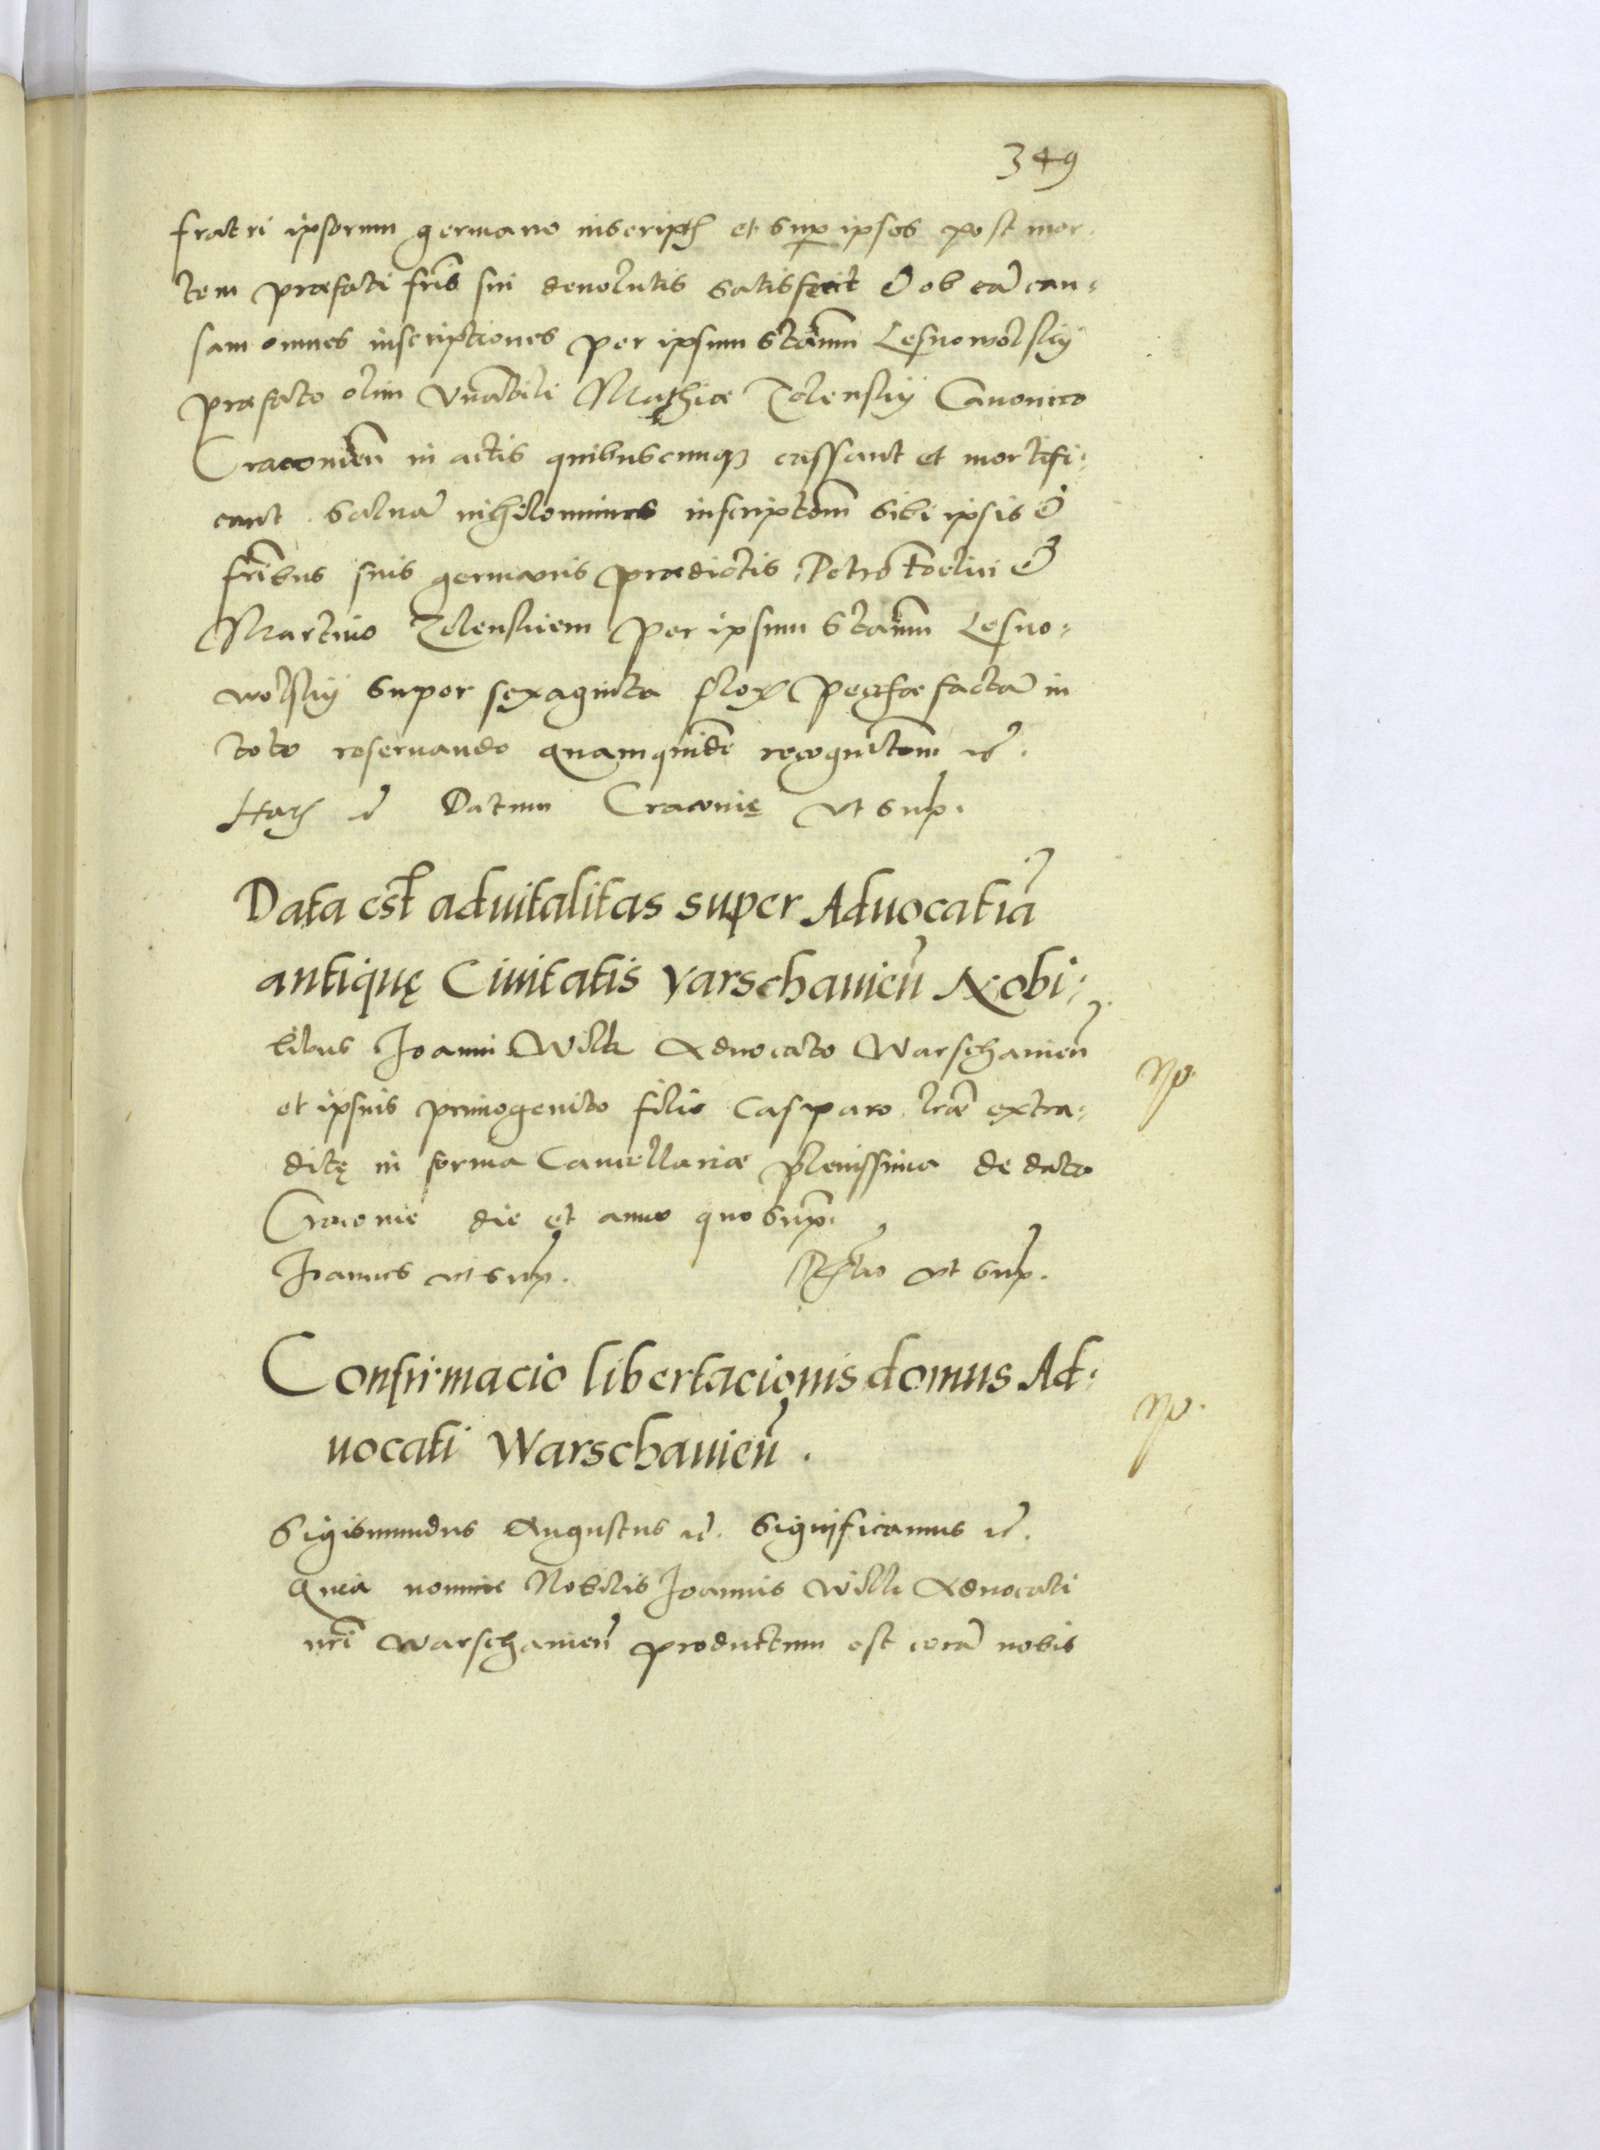 349
fratri ipsorum germano inscriptis et sup ipsos post mor-
tem præfati fris sui deuolutis satisfecit & ob eã cau-
sam omnes inscriptiones per ipsum Stanm Lesnowolsky
præfato olim Vnabili Mathiæ Zelensky Canonico
Cracouien in actis quibuscunq cassant et mortifi-
cant saluã nihilominus inscriptom sibi ipsis &
fribus suis germanis prædictis Petro &
Martino Zelenskiem per ipsum Stanm Lesno-
wolsky super sexaginta flor pecuniæ factã in
toto reseruando quamquidẽ recognitom ec.
Har ec Datum Cracouię vt sup.
Data est aduitalitas super Aduocatiã
antiquę Ciuitatis Varschauieñ Nobi-
libus Joanni Wilk Aduocato Warschauieñ
et ipsius primogenito filio Casparo lræ extra-
ditę in forma Cancellariæ plenissima de data
Cracouie die et anno quo supra.
Joannes vt sup. Rlatio vt sup.
Confirmacio libertacionis domus Ad-
uocati Warschauieñ.
Sigismundus Augustus ec. Significamus ec.
Quia nomine Nobilis Joannis Wilk Aduocati
nri Warschauieñ productum est corã nobis